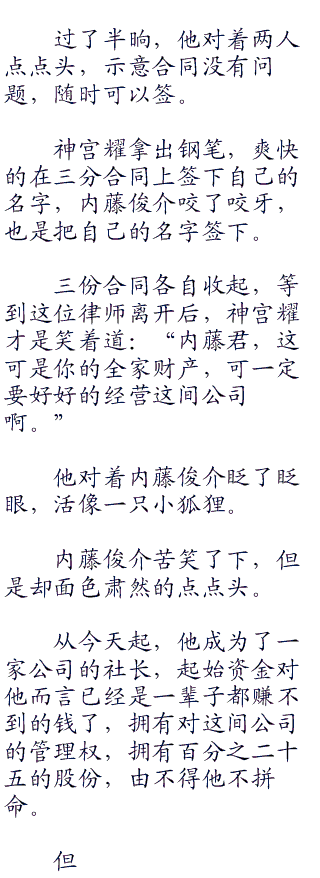 过了半晌，他对着两人
点点头，示意合同没有问
题，随时可以签。
神宫耀拿出钢笔，爽快
的在三分合同上签下自己的
名字，内藤俊介咬了咬牙，
也是把自己的名字签下。
三份合同各自收起，等
到这位律师离开后，神宫耀
才是笑着道：“内藤君，这
可是你的全家财产，可一定
要好好的经营这间公司
啊。”
他对着内藤俊介眨了眨
眼，活像一只小狐狸。
内藤俊介苦笑了下，但
是却面色肃然的点点头。
从今天起，他成为了一
家公司的社长，起始资金对
他而言已经是一辈子都赚不
到的钱了，拥有对这间公司
的管理权，拥有百分之二十
五的股份，由不得他不拼
命。
但